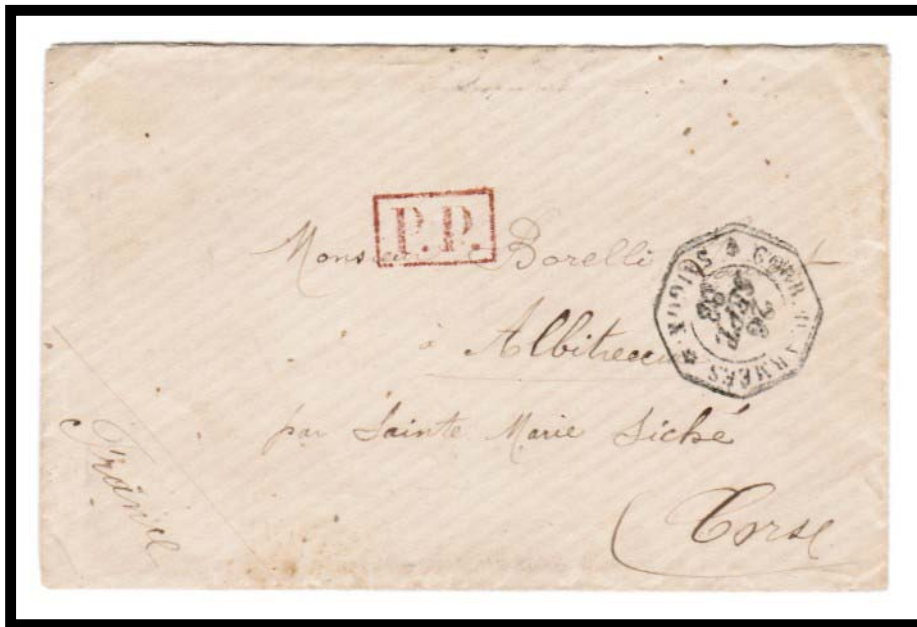 P.P.
Monsieur Borelli
à Albitreccia
par Sainte Marie Siché
Corse
France
CORR. D. ARMÉES
SAIGON
26
SEPT.
88